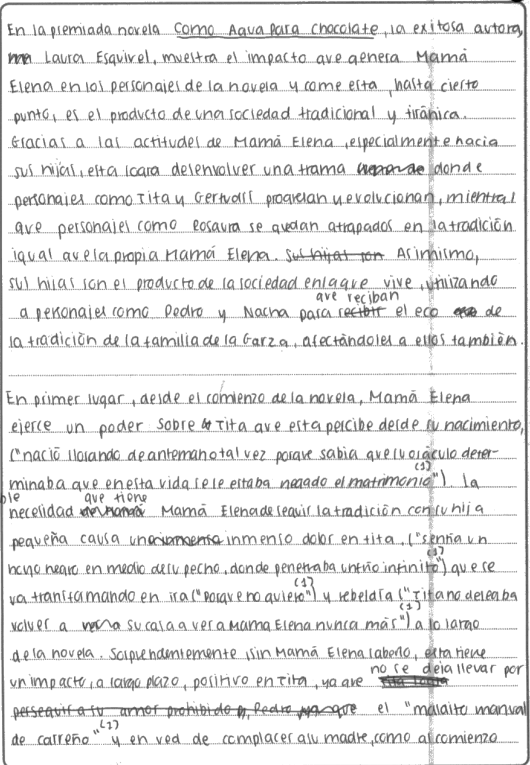 En la premiada novela Como Agua para Chocolate, la exitosa autora,
Laura Esquivel, muestra el impacto que genera Mamá
Elena en los personajes de la novela y come esta, hasta cierto
punto, es el producto de una sociedad tradicional y tiránica.
Gracias a las actitudes de Mamá Elena, especialmente hacia
sus hijas, esta logra desenvolver una trama donde
personajes como Tita y Gertrudis progresan y evolucionan, mientras
que personajes como Rosaura se quedan atrapados en la tradición
igual que la propia Mamá Elena. Sus hijas son Asimismo,
sus hijas son el producto de la sociedad en la que vive, utilizando
que reciban
a personajes como Pedro y Nacha para recibir el eco de
la tradición de la familia de la Garza, afectándoles a ellos también.
En primer lugar, desde el comienzo de la novela, Mamá Elena
ejerce un poder sobre Tita que esta percibe desde su nacimiento,
("nació llorando de antemano tal vez porque sabía que su oráculo deter-
minaba que en esta vida se le estaba negado el matrimonio"(1)). La
que tiene
necesidad Mamá Elena de seguir la tradición con su hija
pequeña causa un inmenso dolor en tita, ("sentía un
hoyo negro en medio de su pecho, donde penetraba un frío infinito"(1)) que se
va transfamando en ira ("porque no quiero"(1)) y rebeldía ("Tita no deseaba
volver a su casa a ver a Mamá Elena nunca más"(1)) a lo largo
de la novela. Sorprendentemente, sin Mamá Elena saberlo, esta tiene
no se deja llevar por
un impacto, a largo plazo, positivo en Tita, ya que
perseguir a su amor prohibido, Pedro ya que el "maldito manual
de carreño"(2) y en ved de complacer a su madre, como al comienzo